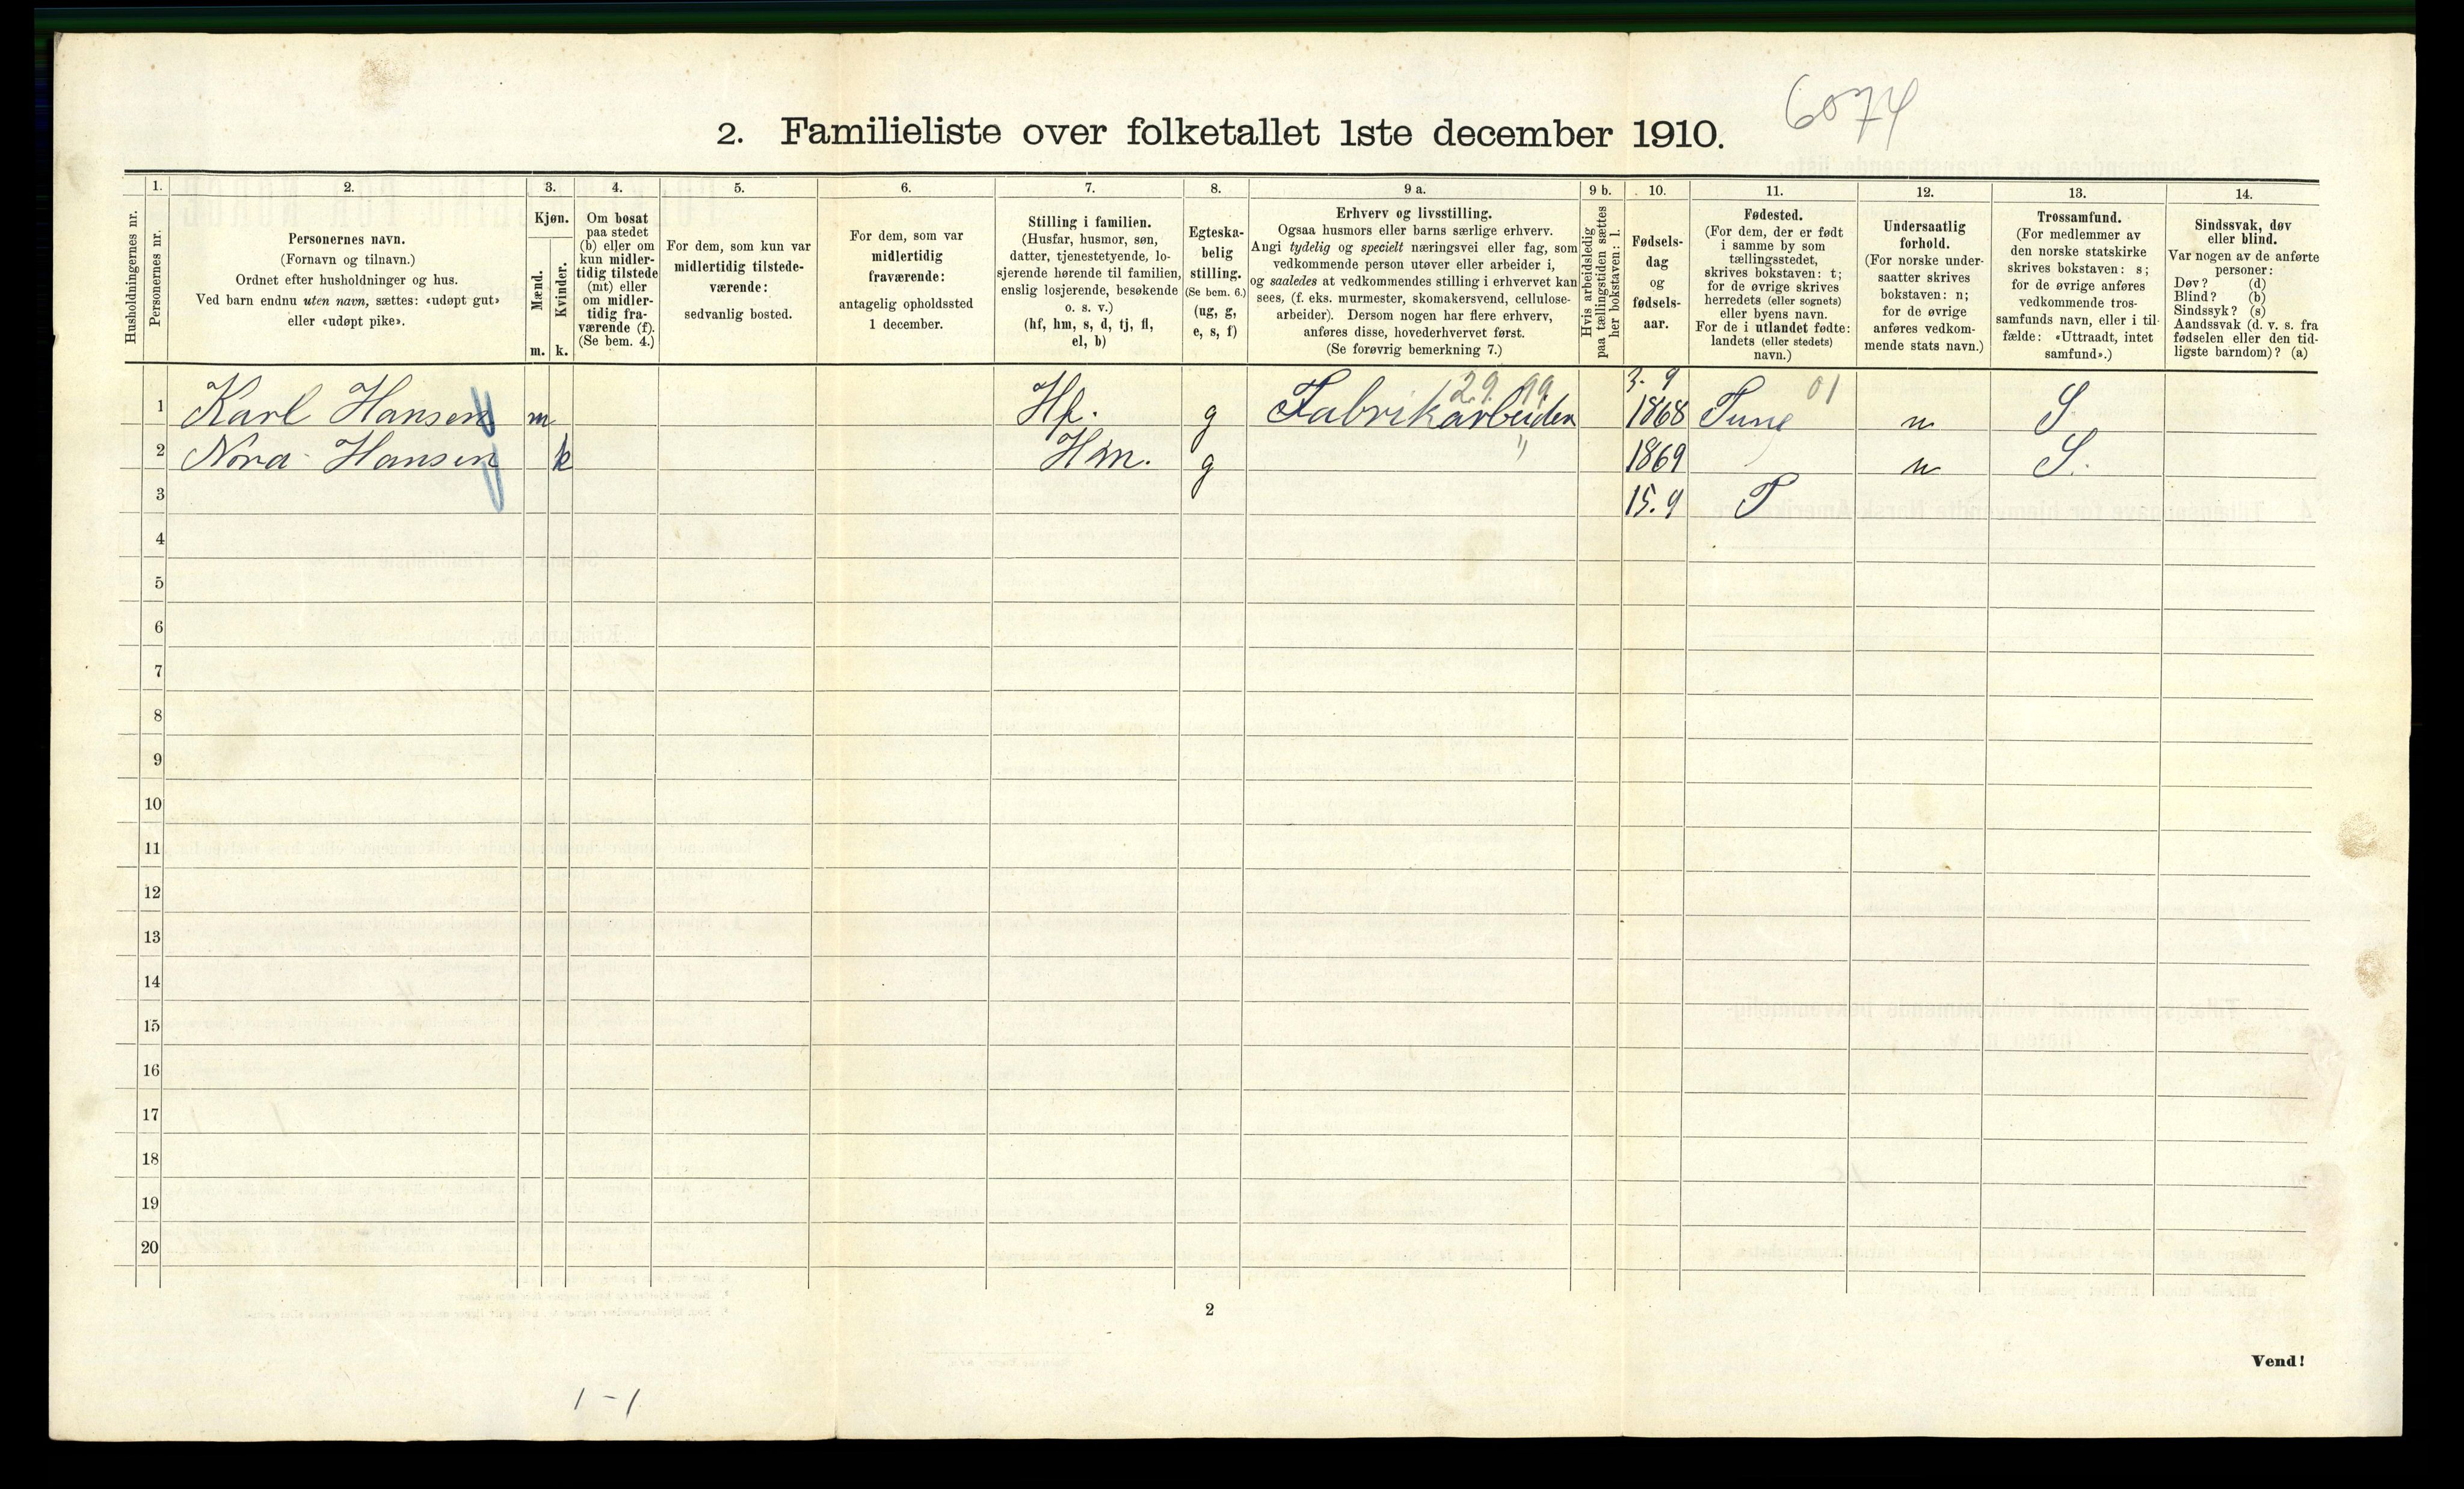 6074
2. Familieliste over folketallet 1ste december 1910.
Husholdningernes nr.
1.
Personernes nr.
2.
Personernes navn.
(Fornavn og tilnavn.)
Ordnet efter husholdninger og hus.
Ved barn endnu uten navn, sættes: «udøpt gut»
eller «udøpt pike».
3.
Kjøn.
Mænd.
Kvinder.
m. k.
4.
Om bosat
paa stedet
(b) eller om
kun midler-
tidig tilstede
(mt) eller
om midler-
tidig fra-
værende (f).
(Se bem. 4.)
5.
For dem, som kun var
midlertidig tilstede-
værende:
sedvanlig bosted.
6.
For dem, som var
midlertidig
fraværende:
antagelig opholdssted
1 december.
7.
Stilling i familien.
(Husfar, husmor, søn,
datter, tjenestetyende, lo-
sjerende hørende til familien,
enslig losjerende, besøkende
o. s. v.)
(hf, hm, s, d, tj, fl,
el, b)
8.
Egteska-
belig
stilling.
(Se bem. 6.)
(ug, g,
e, s, f)
9 a.
Erhverv og livsstilling.
Ogsaa husmors eller barns særlige erhverv.
Angi tydelig og specielt næringsvei eller fag, som
vedkommende person utøver eller arbeider i,
og saaledes at vedkommendes stilling i erhvervet kan
sees, (f. eks. murmester, skomakersvend, cellulose-
arbeider). Dersom nogen har flere erhverv,
anføres disse, hovederhvervet først.
(Se forøvrig bemerkning 7.)
9 b.
Hvis arbeidsledig
paa tællingstiden sættes
her bokstaven: l.
10.
Fødsels-
dag
og
fødsels-
aar.
11.
Fødested.
(For dem, der er født
i samme by som
tællingsstedet,
skrives bokstaven: t;
for de øvrige skrives
herredets (eller sognets)
eller byens navn.
For de i utlandet fødte:
landets (eller stedets)
navn.)
12.
Undersaatlig
forhold.
(For norske under-
saatter skrives
bokstaven: n;
for de øvrige
anføres vedkom-
mende stats navn.)
13.
Trossamfund.
(For medlemmer av
den norske statskirke
skrives bokstaven: s;
for de øvrige anføres
vedkommende tros-
samfunds navn, eller i til-
fælde: «Uttraadt, intet
samfund».)
14.
Sindssvak, døv
eller blind.
Var nogen av de anførte
personer:
Døv? (d)
Blind? (b)
Sindssyk? (s)
Aandssvak (d. v. s. fra
fødselen eller den tid-
ligste barndom)? (a)
29. 99 3. 9 01
1 Karl Hansen m Hf. g Fabrikarbeider 1868 Tune n S
2 Nora Hansen k Hm. g " 1869 n S.
3 15. 9 T
4
5
6
7
8
9
10
11
12
13
14
15
16
17
18
19
20
2
Vend!
1-1